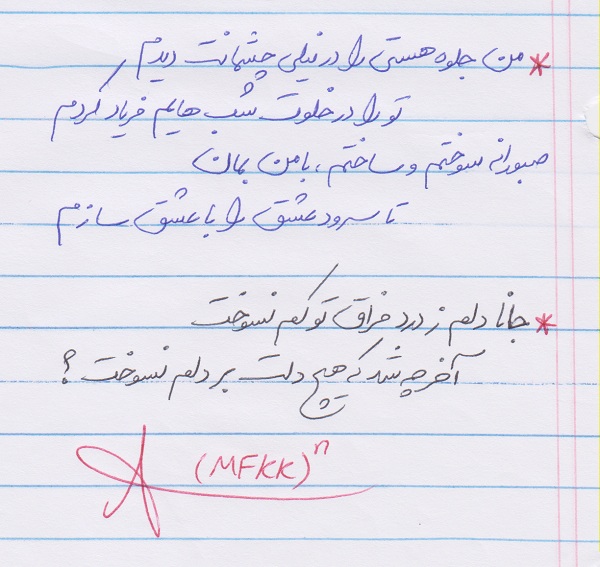 * من جلوه هستی را در نیلی چشمانت دیدم
تو را در خلوت شب هایم فریاد کردم
صبورانه سوختم و ساختم ، با من بمان
تا سرود عشق را با عشق سازم
* جانا دلم ز درد فراق تو کم نسوخت
آخر چه شد که هیچ دلت بر دلم نسوخت ؟
(MFKK)ⁿ